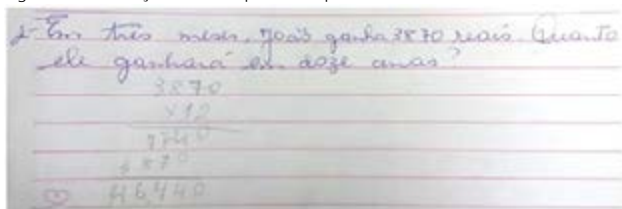 2- Em três meses, João ganha 3870 reais. Quanto
ele ganhará em doze anos?
3870
x12
7740
3870
46,440